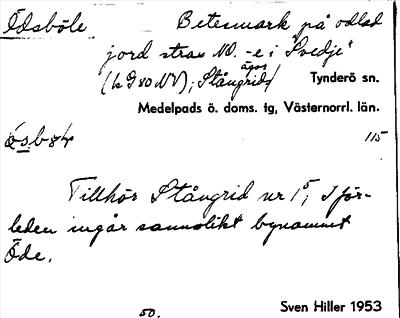 Ödsböle. Betesmark på odlad
jord strax NO. -e i "Svedje"
(h 9 80 NV); Stångrid ägor Tynderö sn.
Medelpads ö. doms. tg, Västernorrl. län.
115
Tillhör Stångrid nr 1⁵; I för-
leden ingår sannolikt bynamnet
Öde.
50. Sven Hiller 1953